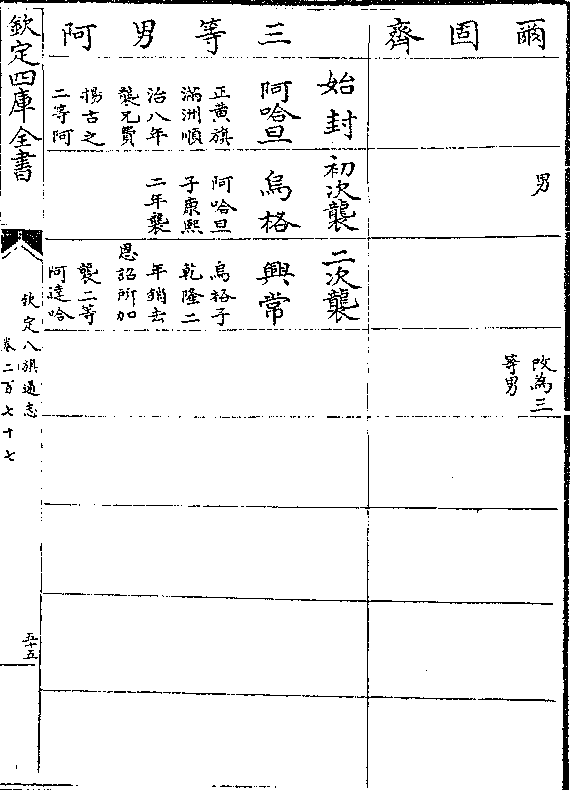 爾固齊
男
改為三
等男
三等男阿
始封
阿哈旦
正黃旗
滿洲順
治八年
襲兄費
揚古之
二等阿
初次襲
烏格
阿哈旦
子康熙
二年襲
二次襲
興常
烏格子
乾隆二
年銷去
恩詔所加
襲二等
阿達哈
欽定四庫全書
欽定八旗通志
卷二百七十七
五十五